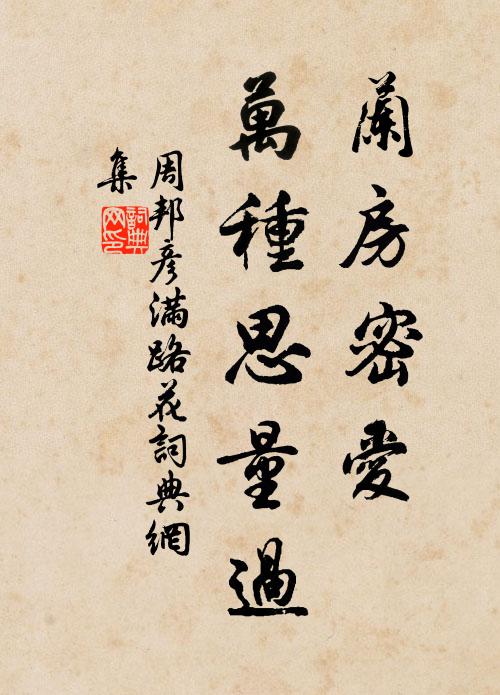 蘭房密愛
萬種思量過
周邦彦滿路花詞典網
集
詞典
网印